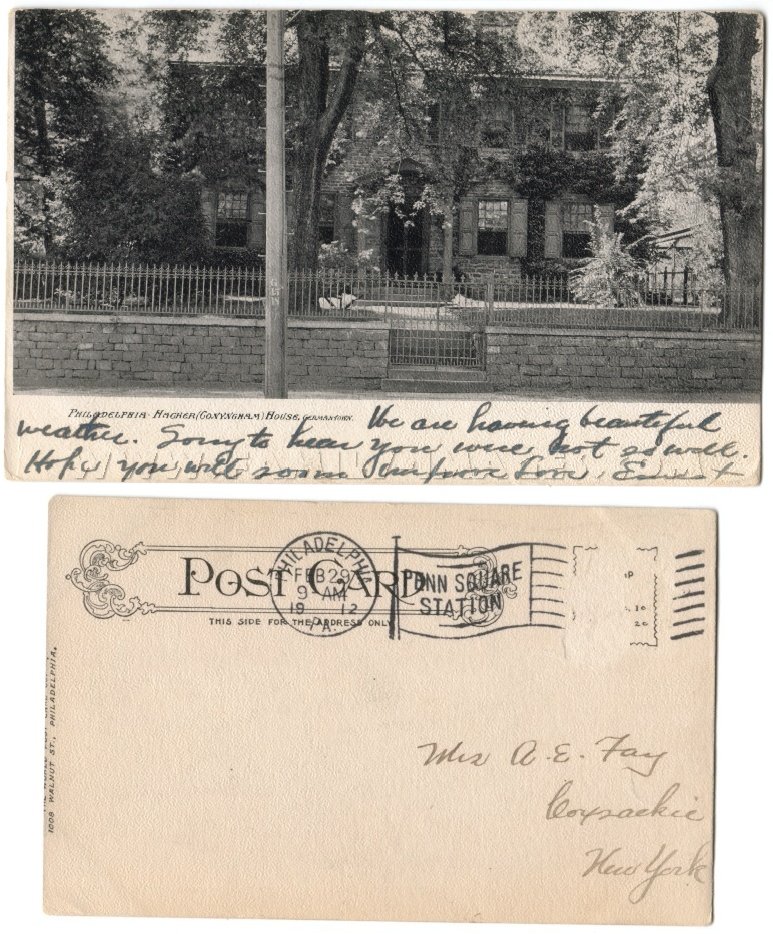 PHILADELPHIA- HACKER (CONYNGHAM) HOUSE, GERMANTOWN.
We are having beautiful
weather. Sorry to hear you were not so well.
Hope you will soon improve Love, Ernest
POST CARD
THIS SIDE FOR THE ADDRESS ONLY
PHILADELPHIA
FEB 29
9 AM
19 12
PA.
PENN SQUARE
STATION
1008 WALNUT ST., PHILADELPHIA.
Mrs A. E. Fay
Coxsackie
New York